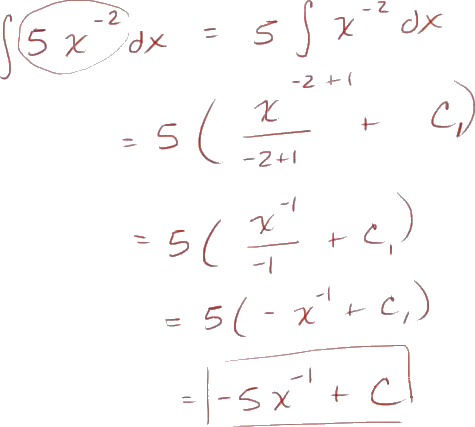 ∫ 5 x⁻² dx = 5 ∫ x⁻² dx
= 5 ( x⁻²⁺¹ / -2+1 + C₁ )
= 5 ( x⁻¹ / -1 + C₁ )
= 5 ( - x⁻¹ + C₁ )
= -5 x⁻¹ + C